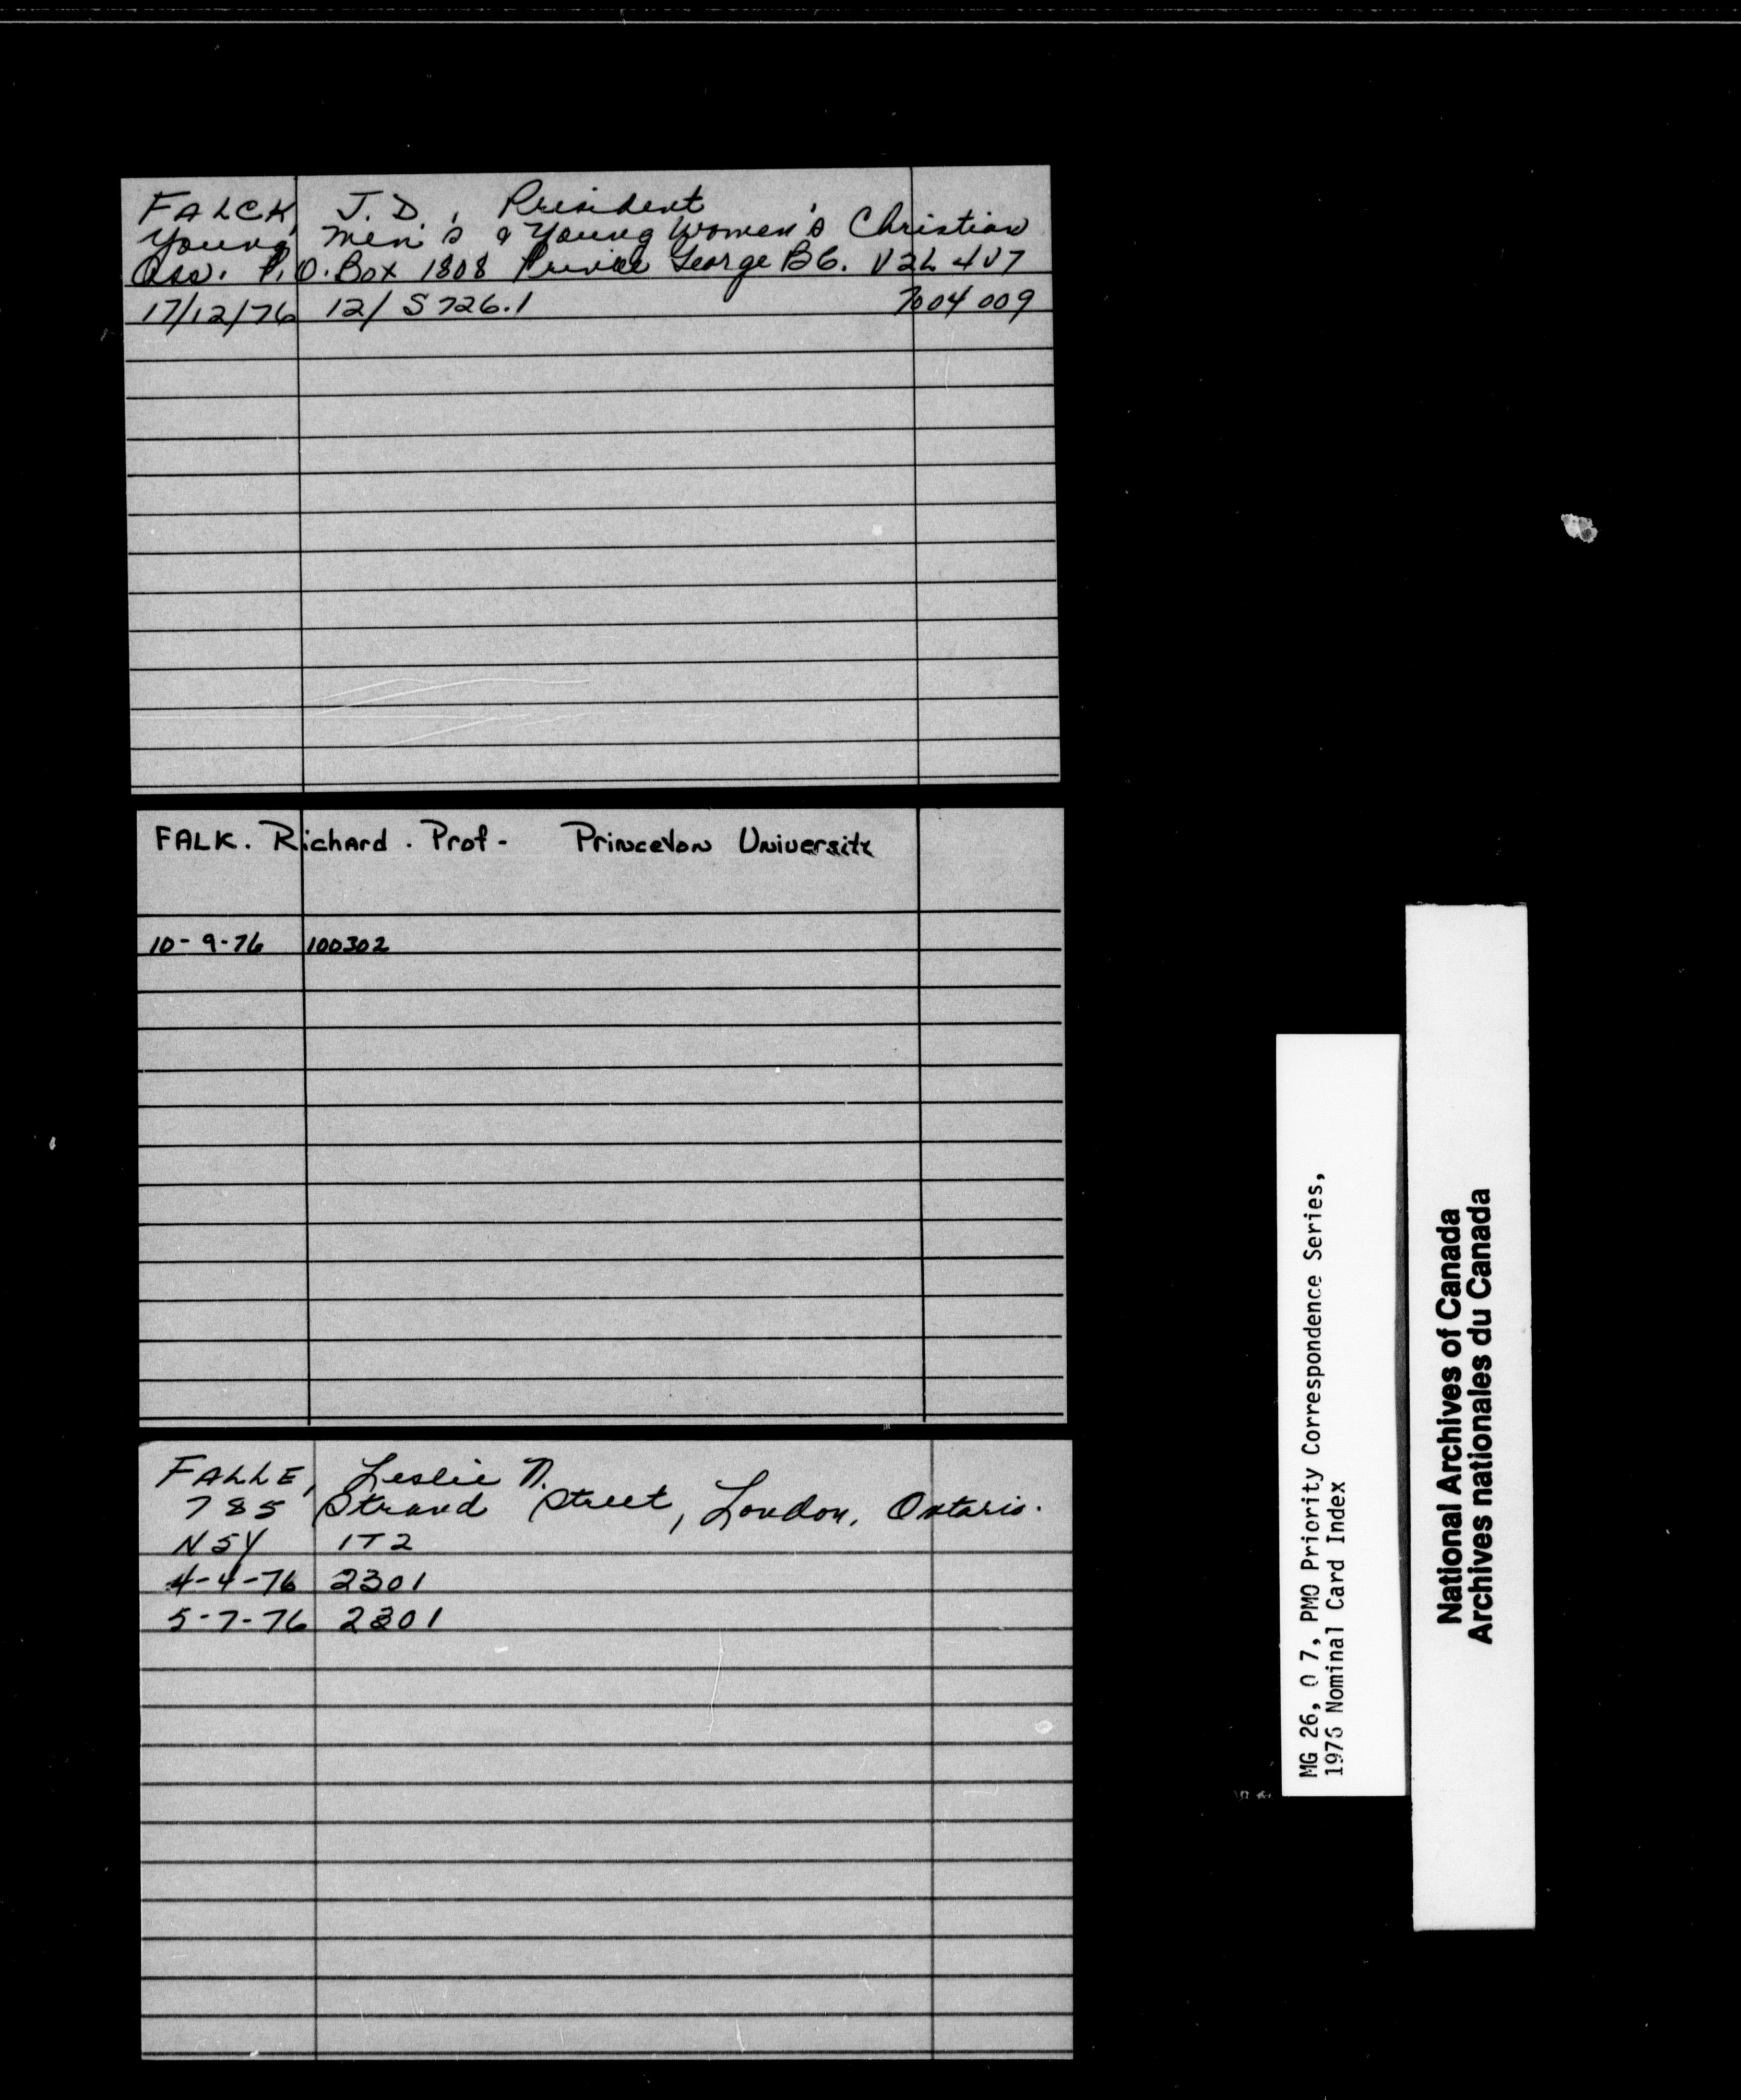 FALCK, J.D., President
Young Men's & Young Women's Christian
Ass. P.O. Box 1808 Prince George B.C. V2L 4V7
17/12/76 12/ S726.1 7004009
FALK. Richard. Prof - Princeton University
10-9-76 100302
FALLE, Leslie N.
785 Strand Street, London, Ontario.
N5Y 1T2
4-4-76 2301
5-7-76 2301
MG 26, O 7, PMO Priority Correspondence Series,
1976 Nominal Card Index
National Archives of Canada
Archives nationales du Canada